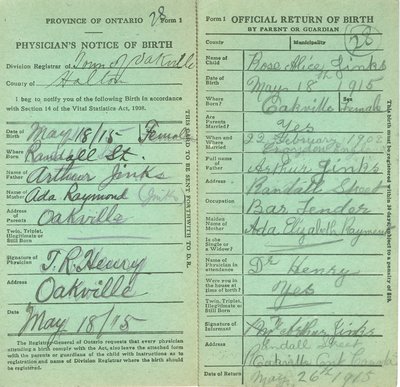 PROVINCE OF ONTARIO 28 Form 1
PHYSICIAN'S NOTICE OF BIRTH
Division Registrar of Town of Oakville
County of Halton
I beg to notify you of the following Birth in accordance
with Section 14 of the Vital Statistics Act, 1908.
Date of Birth May 18/15 Female
Where Born Randall St.
Name of Father Arthur Jinks
Name of Mother Ada Raymond Jinks
Address of Parents Oakville
Twin, Triplet, Illegitimate or Still Born
Signature of Physician T. R. Henry
Address Oakville
Date May 18/15
The Registrar-General of Ontario requests that every physician
attending birth comply with the Act, also leave the attached form
with the parents or guardians of the child with instructions as to
registration and name of Division Registrar where birth should
be registered.
THIS CARD TO BE SENT FORTHWITH TO D.R.
Form 1 OFFICIAL RETURN OF BIRTH
BY PARENT OR GUARDIAN
County Municipality 28
Name of Child Rose Alice Jinks
Date of Birth May 18th 1915
Where Born? Oakville Sex Female
Are Parents Married? Yes
When and Where Married 22 February 1902
England
Full name of Father Arthur Jinks
Address Randall Street
Occupation Bar Tender
Maiden Name of Mother Ada Elizabeth Rayment
Is she Single or a Widow?
Name of Physician in attendance Dr Henry
Were you in the house at time of birth? Yes
Twin, Triplet, Illegitimate or Still Born
Signature of Informant Mr Arthur Jinks
Address Randall Street
Oakville Ont Canada
Date of Return May 26th 1915